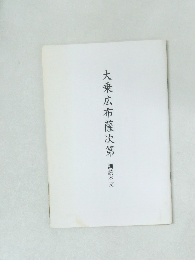 大乗広布薩次第